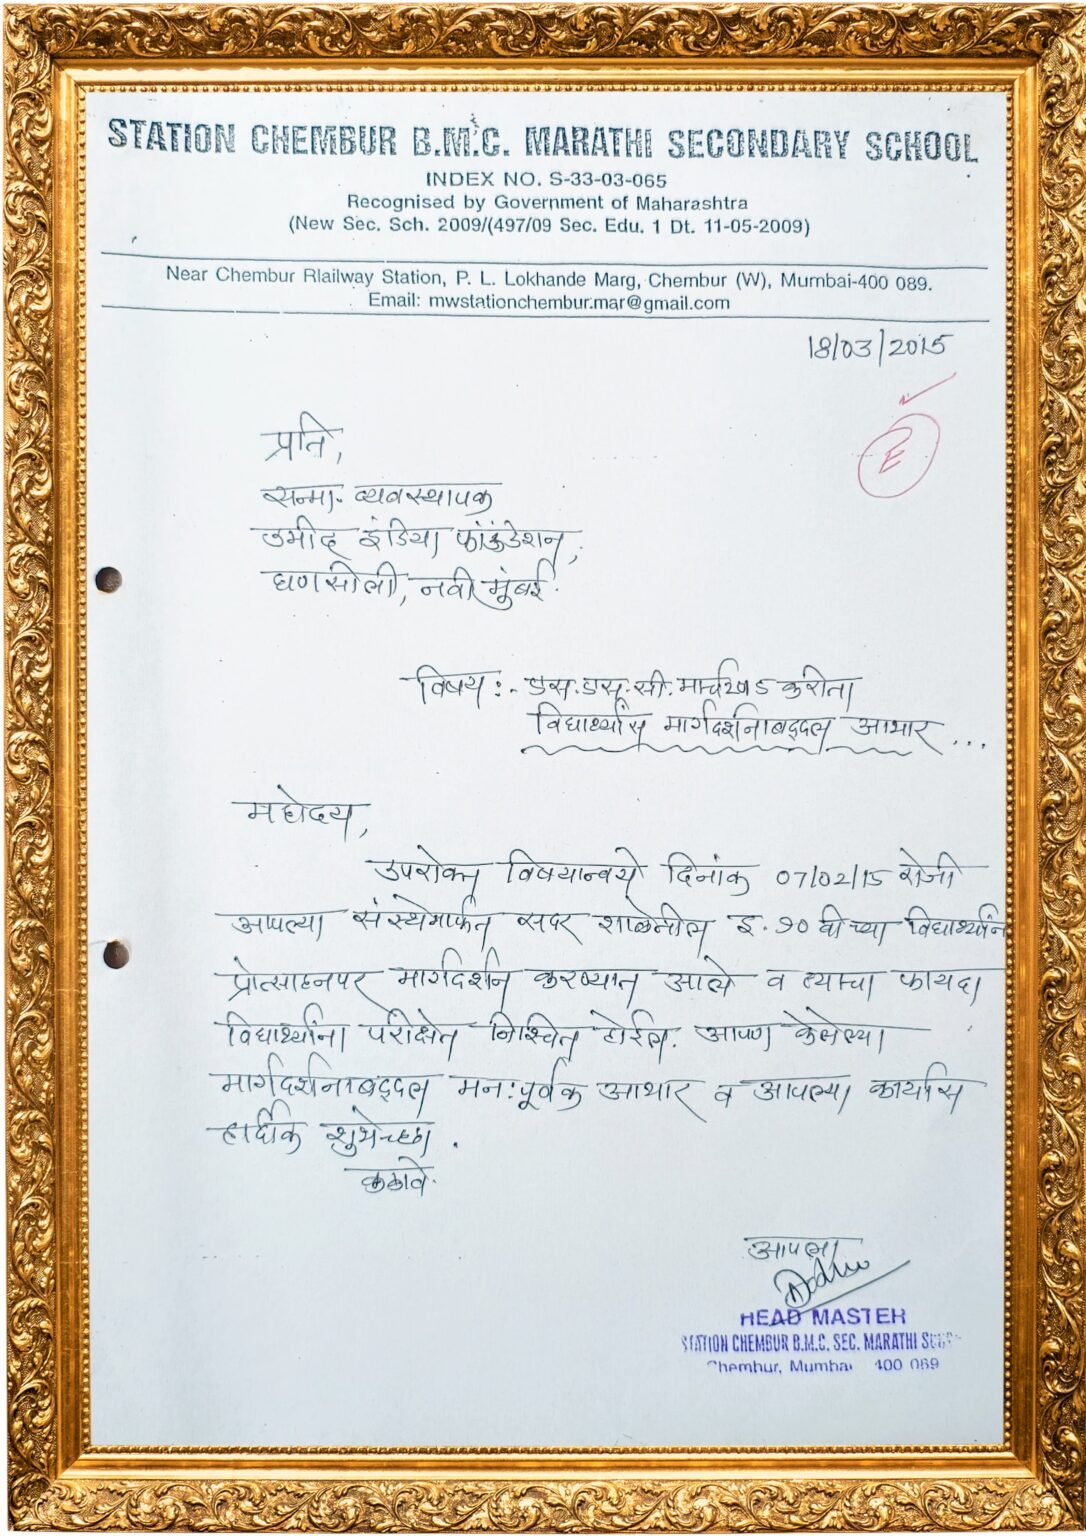 STATION CHEMBUR B.M.C. MARATHI SECONDARY SCHOOL
INDEX NO. S-33-03-065
Recognised by Government of Maharashtra
(New Sec. Sch. 2009/(497/09 Sec. Edu. 1 Dt. 11-05-2009)
Near Chembur Rlailway Station, P. L. Lokhande Marg, Chembur (W), Mumbai-400 089.
Email: mwstationchembur.mar@gmail.com
18/03/2015
E
प्रति,
सन्मा. व्यवस्थापक
उमीद इंडिया फाऊंडेशन,
घणसोली, नवी मुंबई.
विषय :- एस.एस.सी. मार्च करीता
विद्यार्थ्यांस मार्गदर्शनाबद्दल आभार ...
महोदय,
उपरोक्त विषयान्वये दिनांक 07/02/15 रोजी
आपल्या संस्थेमार्फत सदर शाळेतील इ. १० वी च्या विद्यार्थ्यांना
प्रोत्साहनपर मार्गदर्शन करण्यात आले व त्याचा फायदा
विद्यार्थ्यांना परीक्षेत निश्चित होईल. आपण केलेल्या
मार्गदर्शनाबद्दल मन:पूर्वक आभार व आपल्या कार्यास
हार्दीक शुभेच्छा.
कळावे.
आपला
HEAD MASTER
STATION CHEMBUR B.M.C. SEC. MARATHI
Chembur, Mumbai 400 089